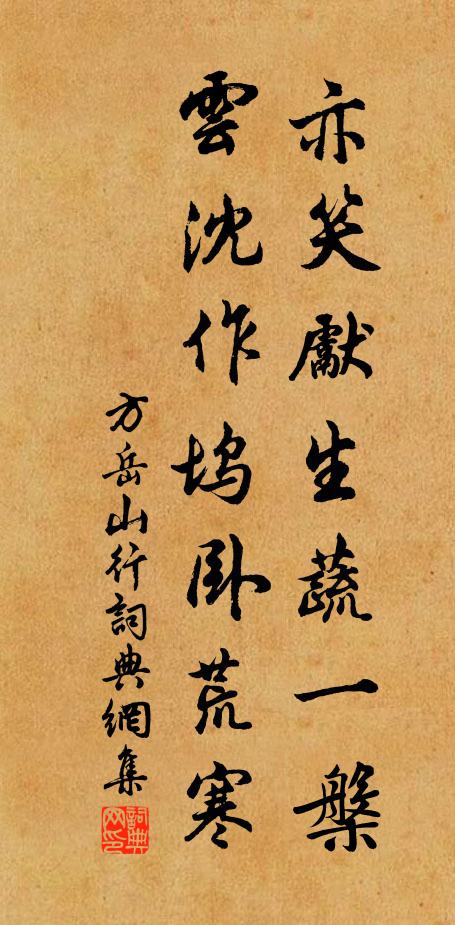 亦笑獻生蔬一槃
雲沈作塢卧荒寒
方岳山行詞典網集
詞典网印